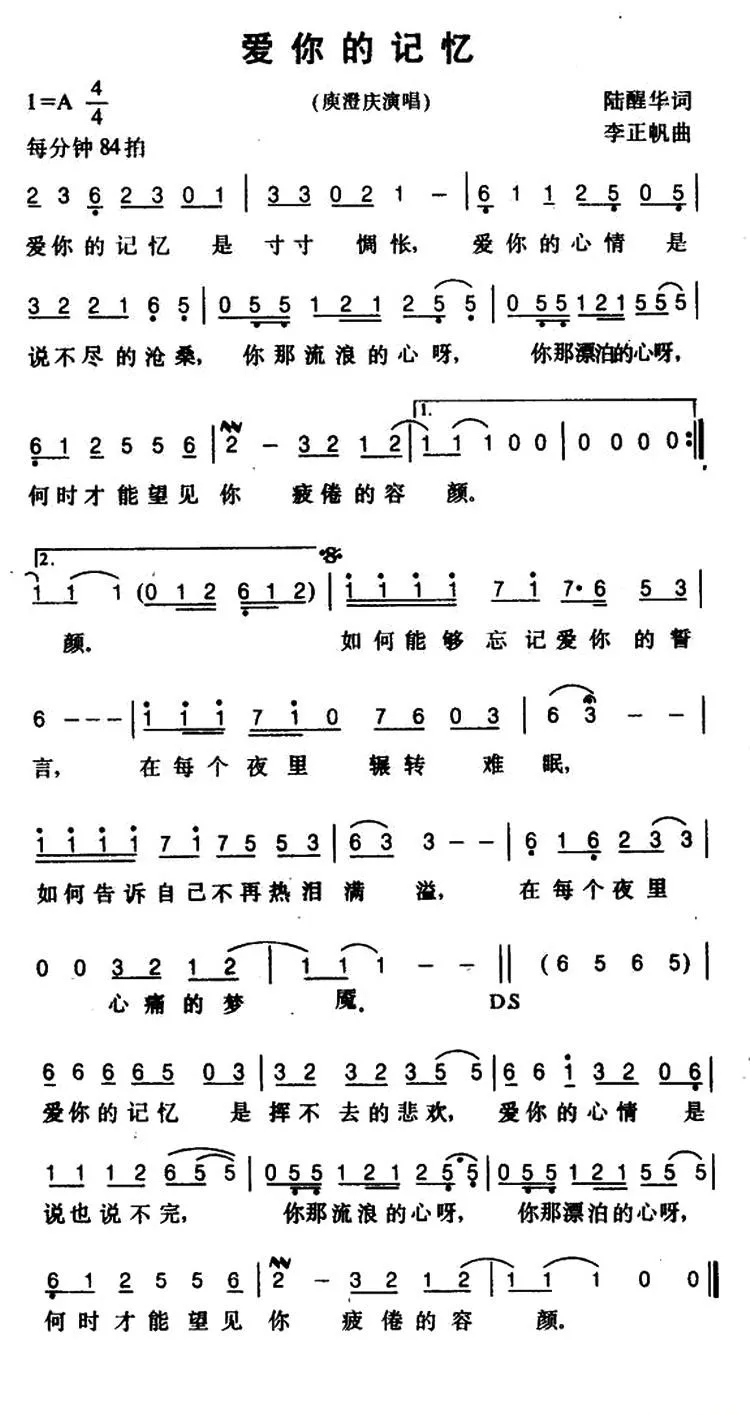 爱你的记忆
1=A 4/4 (庾澄庆演唱) 陆醒华词
每分钟84拍 李正帆曲
2 3 6 2 3 0 1 | 3 3 0 2 1 - | 6 1 1 2 5 0 5 |
爱你的记忆 是 寸寸 惆怅, 爱你的心情 是
3 2 2 1 6 5 | 0 5 5 1 2 1 2 5 5 | 0 5 5 1 2 1 5 5 5 |
说不尽的沧桑, 你那流浪的心呀, 你那漂泊的心呀,
6 1 2 5 5 6 | 2 - 3 2 1 2 | 1. 1 1 1 0 0 | 0 0 0 0 :||
何时才能望见你 疲倦的容 颜.
2. 1 1 1 (0 1 2 6 1 2) | 1 1 1 1 7 1 7· 6 5 3 |
颜. 如何能够忘记爱你的誓
6 - - - | 1 1 1 7 1 0 7 6 0 3 | 6 3 - - |
言, 在每个夜里 辗转 难眠,
1 1 1 1 7 1 7 5 5 3 | 6 3 3 - - | 6 1 6 2 3 3 |
如何告诉自己不再热泪满 溢, 在每个夜里
0 0 3 2 1 2 | 1 1 1 - - || (6 5 6 5) |
心痛的梦 魇. D.S
6 6 6 6 5 0 3 | 3 2 3 2 3 5 5 | 6 6 1 3 2 0 6 |
爱你的记忆 是挥不去的悲欢, 爱你的心情 是
1 1 1 2 6 5 5 | 0 5 5 1 2 1 2 5 5 | 0 5 5 1 2 1 5 5 5 |
说也说不完, 你那流浪的心呀, 你那漂泊的心呀,
6 1 2 5 5 6 | 2 - 3 2 1 2 | 1 1 1 0 0 ||
何时才能望见你 疲倦的容 颜.